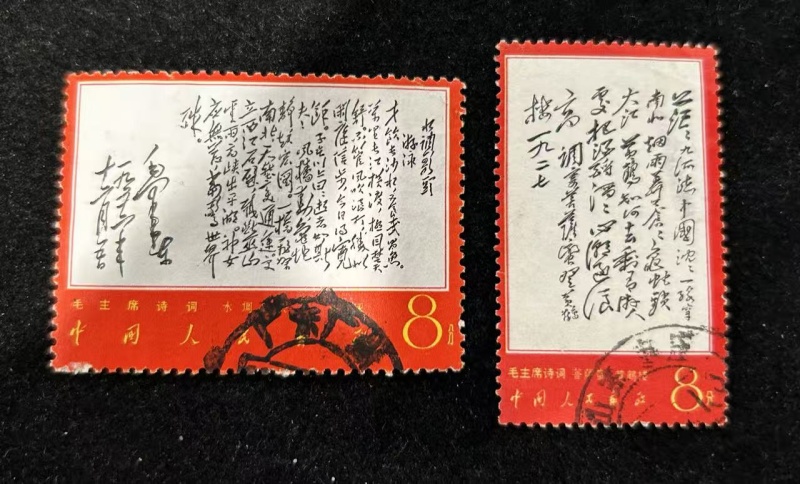 水调歌头
游泳
才饮长沙水又食武昌鱼
万里长江横渡极目楚天
舒不管风吹浪打胜似
闲庭信步今日得宽
馀子在川上曰逝者如斯
夫风樯动龟蛇
静起宏图一桥飞架
南北天堑变通途更
立西江石壁截断巫山
云雨高峡出平湖神女
应无恙当惊世界
殊
毛泽东
一九五六年
十二月五日
毛主席诗词 水调
中国人民
8分
茫茫九派流中国沈沈一线穿
南北烟雨莽苍苍龟蛇锁
大江黄鹤知何去剩有游人
处把酒酹滔滔心潮逐浪
高 调寄菩萨蛮 登黄鹤
楼 一九二七
毛主席诗词 菩萨蛮 黄鹤楼
中国人民邮政
8分
广东